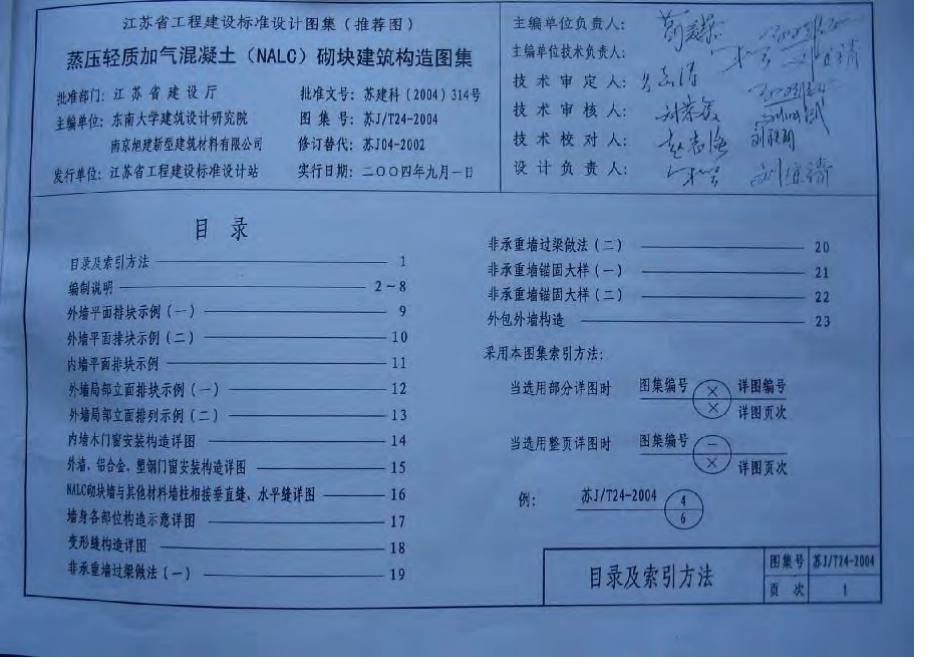 江苏省工程建设标准设计图集(推荐图)
蒸压轻质加气混凝土(NALC)砌块建筑构造图集
批准部门: 江苏省建设厅
批准文号: 苏建科(2004)314号
主编单位: 东南大学建筑设计研究院
图集号: 苏J/T24-2004
南京旭建新型建筑材料有限公司
修订替代: 苏J04-2002
发行单位: 江苏省工程建设标准设计站
实行日期: 二〇〇四年九月一日
主编单位负责人:
主编单位技术负责人:
技术审定人:
技术审核人:
技术校对人:
设计负责人:
目录
目录及索引方法 1
编制说明 2~8
外墙平面排块示例(一) 9
外墙平面排块示例(二) 10
内墙平面排块示例 11
外墙局部立面排块示例(一) 12
外墙局部立面排列示例(二) 13
内墙木门窗安装构造详图 14
外墙、铝合金、塑钢门窗安装构造详图 15
NALC砌块墙与其他材料墙柱相接垂直缝、水平缝详图 16
墙身各部位构造示意详图 17
变形缝构造详图 18
非承重墙过梁做法(一) 19
非承重墙过梁做法(二) 20
非承重墙锚固大样(一) 21
非承重墙锚固大样(二) 22
外包外墙构造 23
采用本图集索引方法:
当选用部分详图时 图集编号 × 详图编号
× 详图页次
当选用整页详图时 图集编号 −
× 详图页次
例: 苏J/T24-2004 4
6
目录及索引方法
图集号 苏J/T24-2004
页次 1